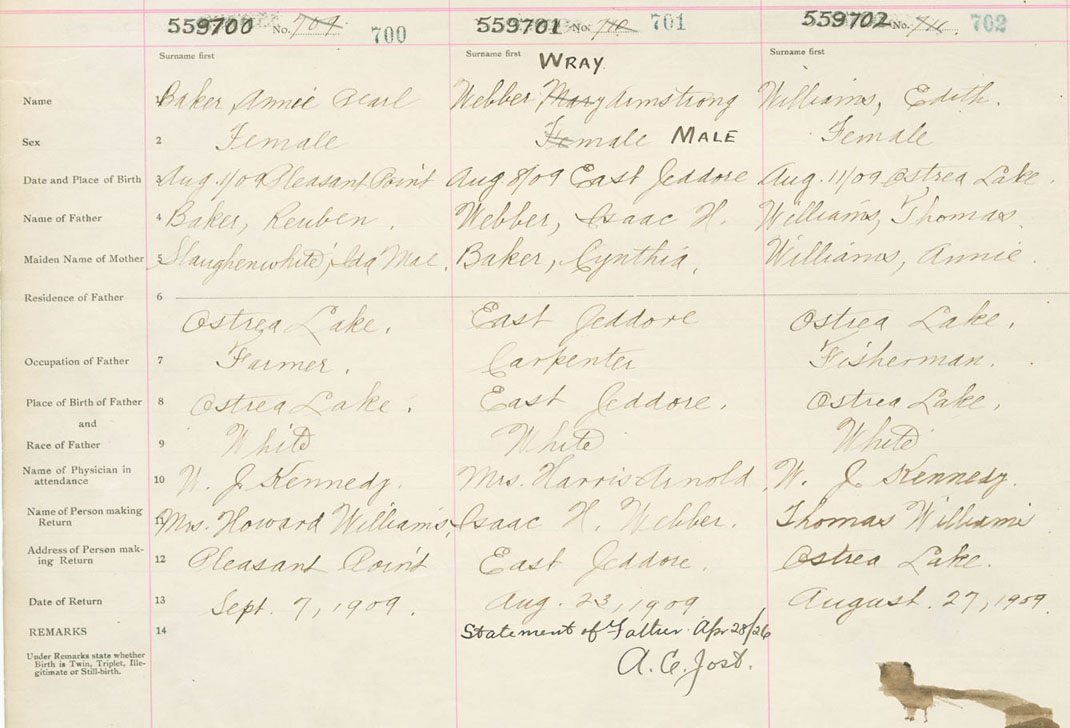 559700 No. 709 700 559701 No. 710 701 559702 No. 711 702
Surname first Surname first Surname first
WRAY
Name 1 Baker, Annie Pearl Webber Mary Armstrong Williams, Edith.
Sex 2 Female Female MALE Female
Date and Place of Birth 3 Aug. 1/09 Pleasant Point Aug 8/09 East Jeddore Aug. 11/09 Ostrea Lake.
Name of Father 4 Baker, Reuben. Webber, Isaac H. Williams, Thomas.
Maiden Name of Mother 5 Slaughenwhite, Ida Mae. Baker, Cynthia. Williams, Annie.
Residence of Father 6
Ostrea Lake. East Jeddore Ostrea Lake.
Occupation of Father 7 Farmer. Carpenter Fisherman.
Place of Birth of Father 8 Ostrea Lake. East Jeddore. Ostrea Lake.
and
Race of Father 9 White White White
Name of Physician in
attendance 10 W. J. Kennedy. Mrs. Harris Arnold W. J. Kennedy.
Name of Person making
Return 11 Mrs. Howard Williams, Isaac H. Webber. Thomas Williams
Address of Person mak-
ing Return 12 Pleasant Point East Jeddore. Ostrea Lake.
Date of Return 13 Sept. 7, 1909. Aug. 23, 1909 August. 27, 1909.
REMARKS 14 Statement of Father Apr 28/26
Under Remarks state whether
Birth is Twin, Triplet, Ille-
gitimate or Still-birth.
A. C. Jost.